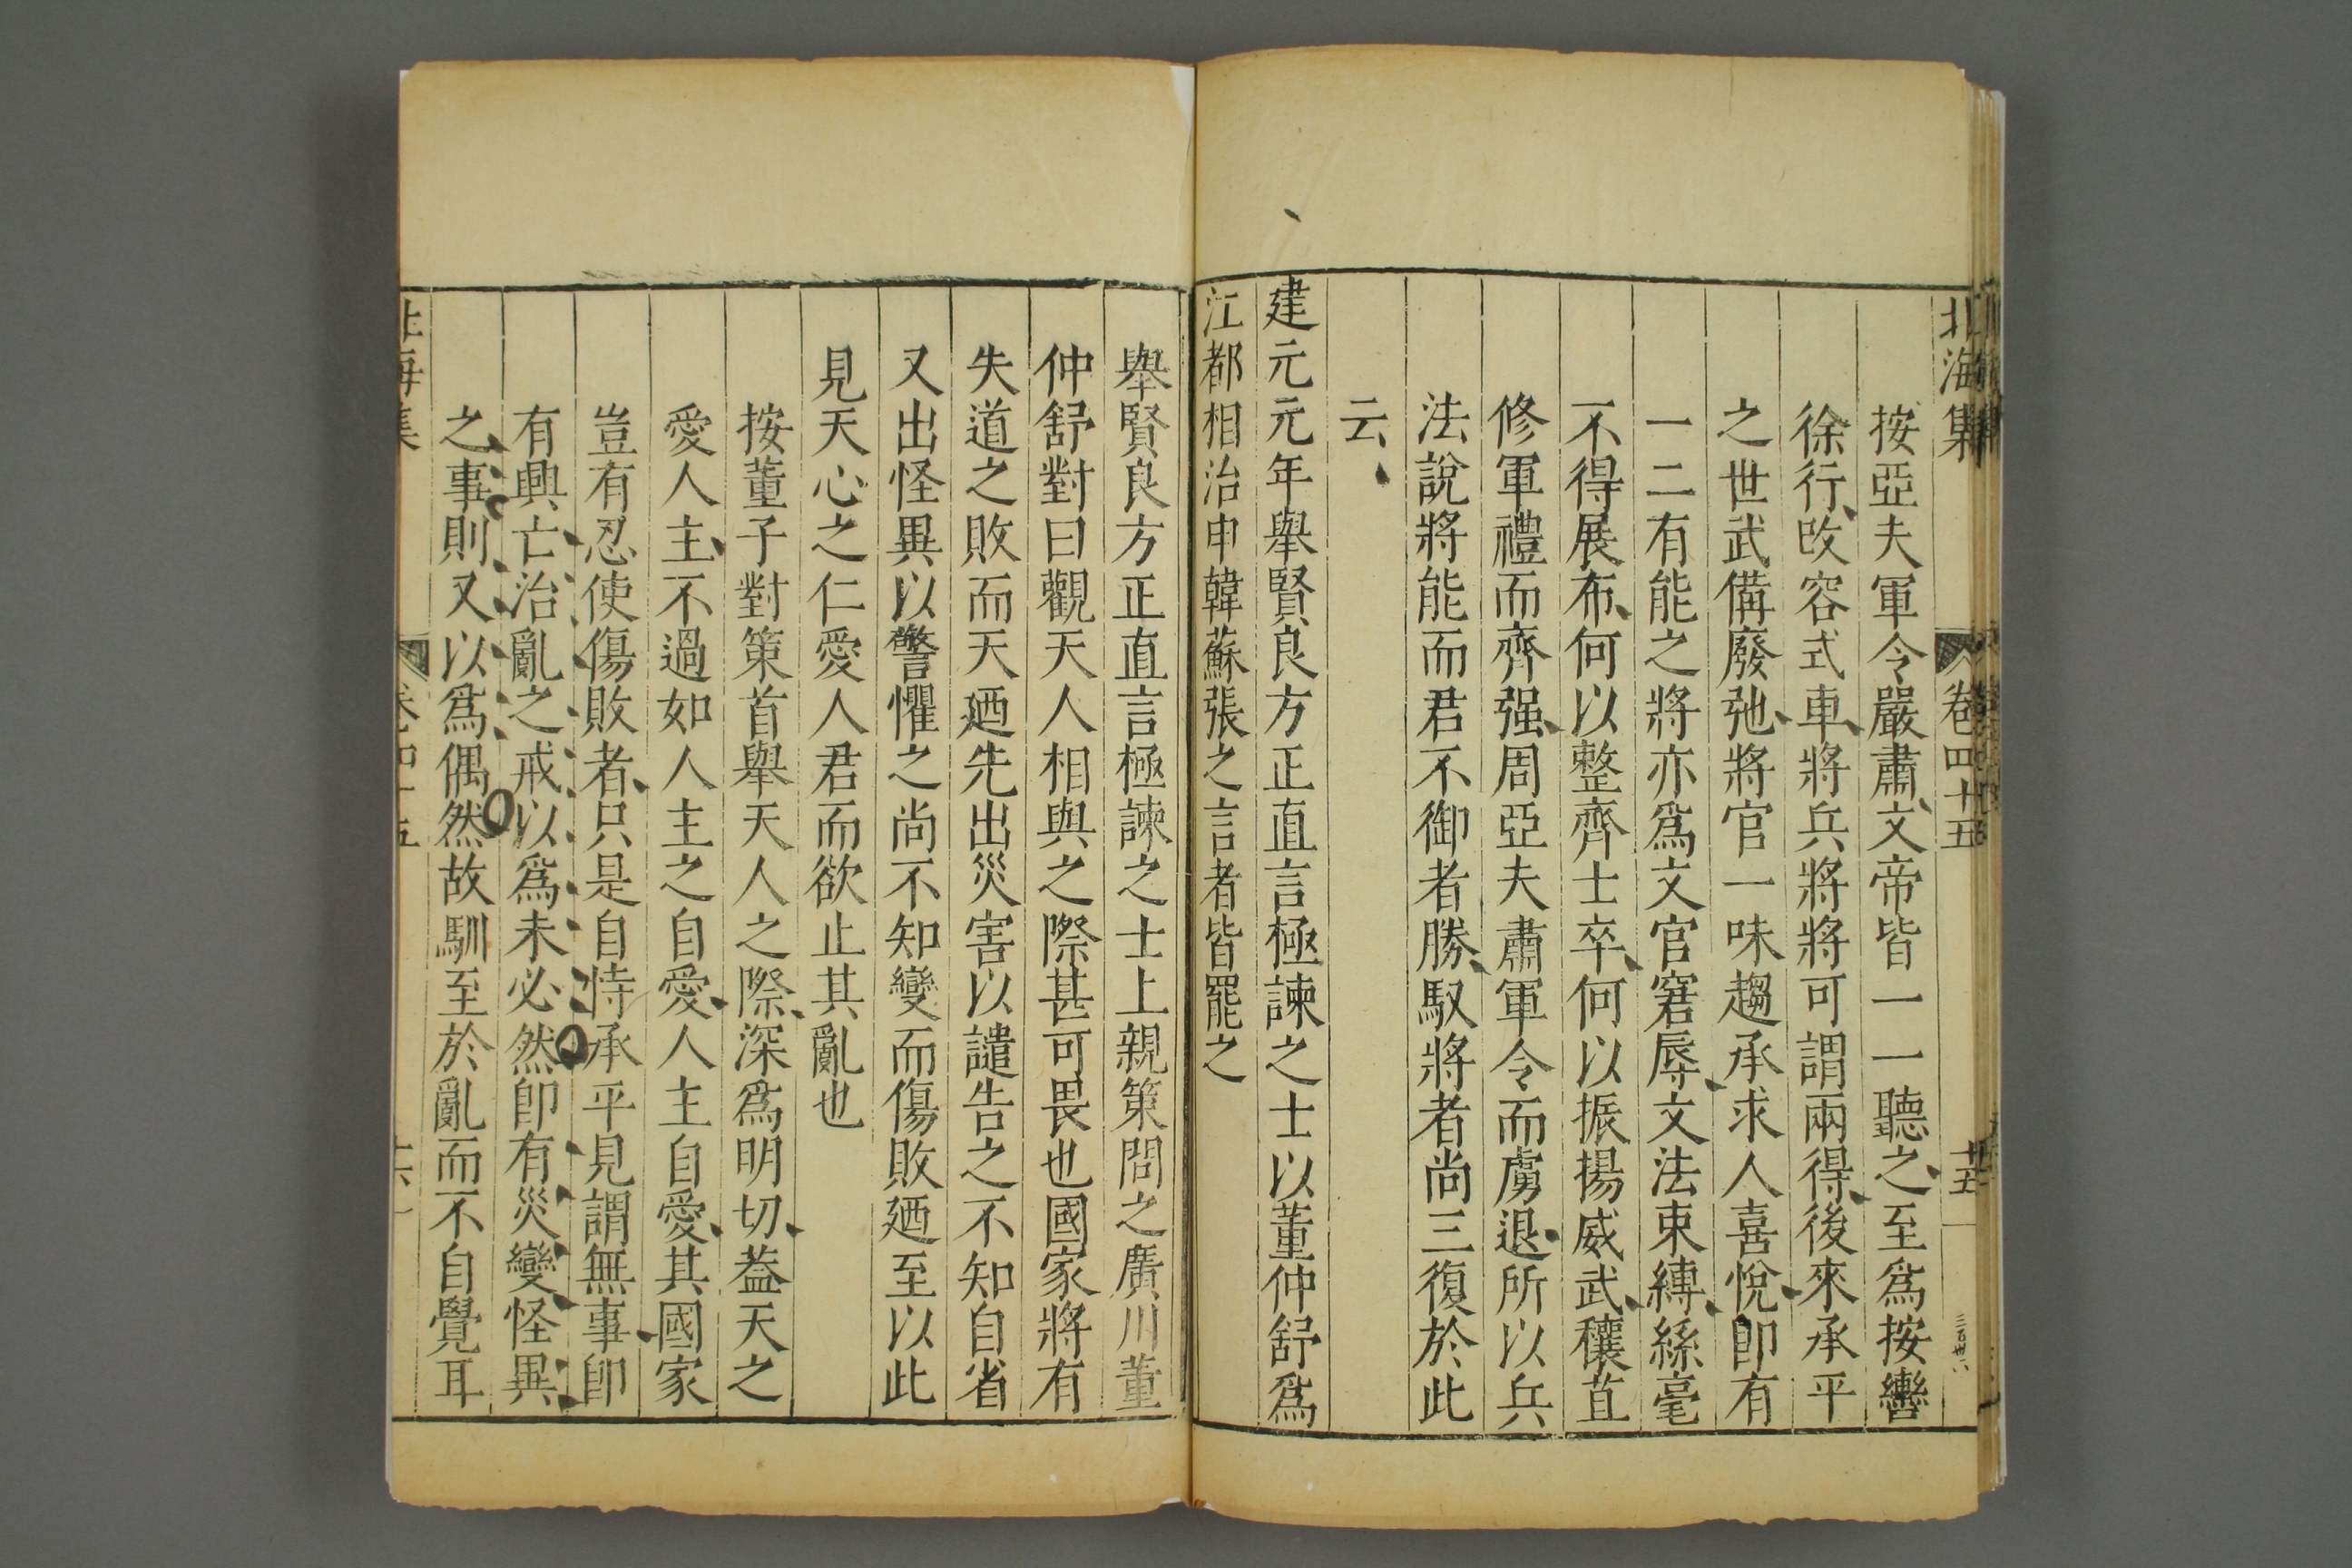 北海集 卷四十五 十五 三百卅六
按亞夫軍令嚴肅文帝皆一一聽之至爲按轡
徐行改容式車將兵將將可謂兩得後來承平
之世武備廢弛將官一味趨承求人喜悅卽有
一二有能之將亦爲文官窘辱文法束縛絲毫
不得展布何以整齊士卒何以振揚威武穰苴
修軍禮而齊强周亞夫肅軍令而虜退所以兵
法說將能而君不御者勝馭將者尚三復於此
云
建元元年舉賢良方正直言極諫之士以董仲舒爲
江都相治申韓蘇張之言者皆罷之
舉賢良方正直言極諫之士上親策問之廣川董
仲舒對曰觀天人相與之際甚可畏也國家將有
失道之敗而天廼先出災害以譴告之不知自省
又出怪異以警懼之尚不知變而傷敗廼至以此
見天心之仁愛人君而欲止其亂也
按董子對策首舉天人之際深爲明切葢天之
愛人主不過如人主之自愛人主自愛其國家
豈有忍使傷敗者只是自恃承平見謂無事卽
有興亡治亂之戒以爲未必然卽有災變怪異
之事則又以爲偶然故馴至於亂而不自覺耳
北海集 卷四十五